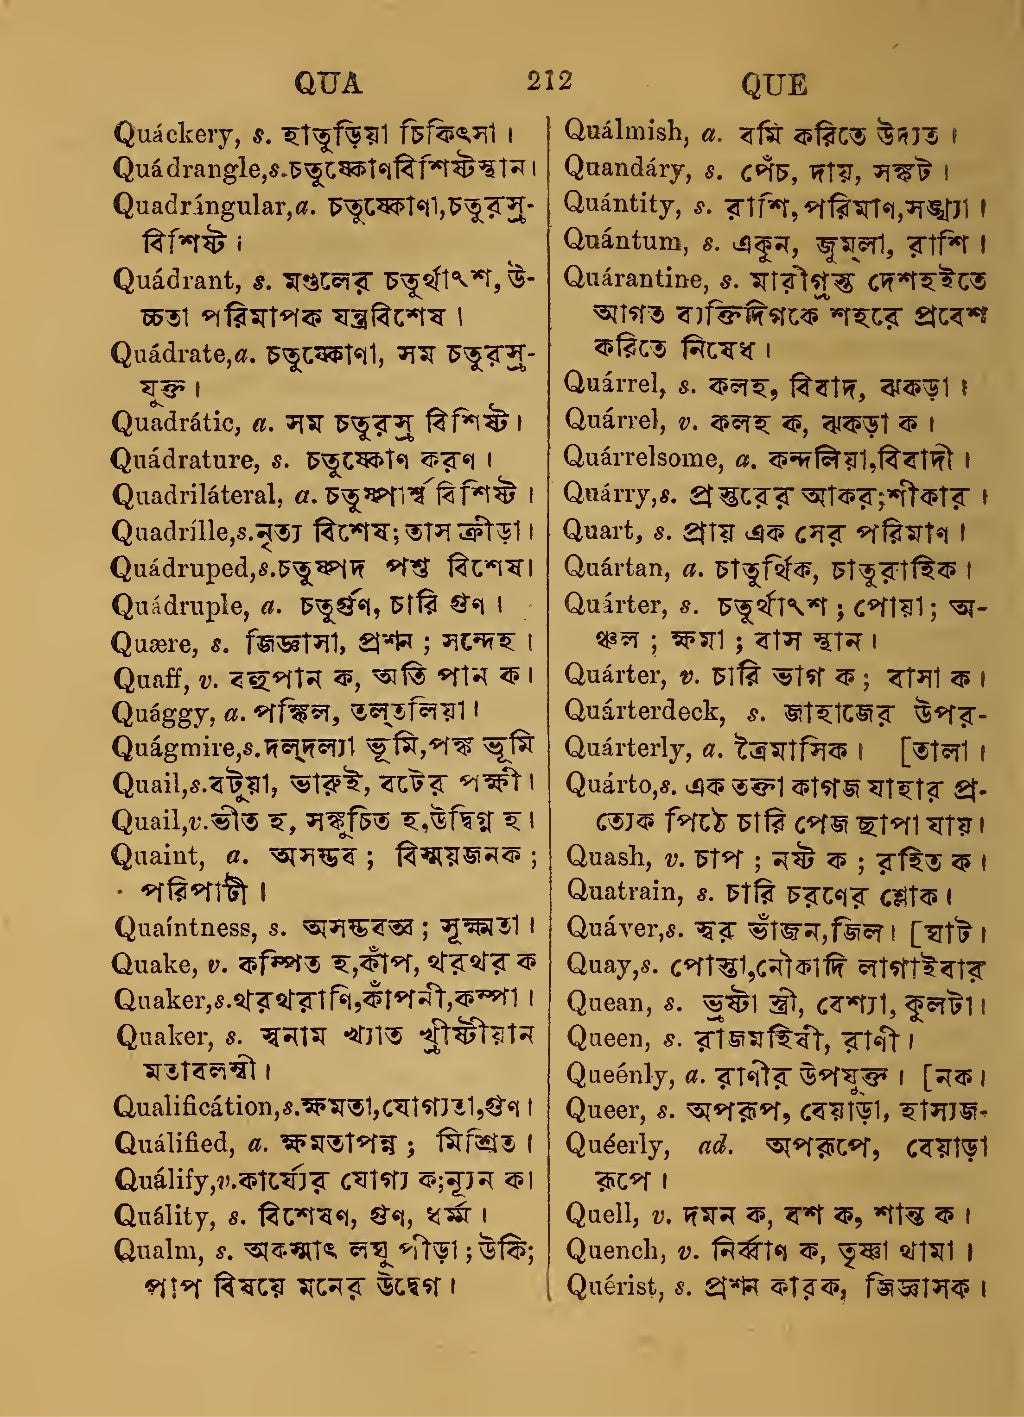 QUA 212 QUE
Quáckery, s. হাতুড়িয়া চিকিৎসা ।
Quádrangle,s.চতুষ্কোণবিশিষ্টস্থান।
Quadríngular,a. চতুষ্কোণা,চতুরস্র-
বিশিষ্ট ।
Quádrant, s. মণ্ডলের চতুর্থাংশ, উ-
চ্চতা পরিমাপক যন্ত্রবিশেষ ।
Quádrate,a. চতুষ্কোণা, সম চতুরস্র-
যুক্ত ।
Quadrátic, a. সম চতুরস্র বিশিষ্ট ।
Quádrature, s. চতুষ্কোণ করণ ।
Quadriláteral, a. চতুষ্পার্শ্ব বিশিষ্ট ।
Quadrílle,s.নৃত্য বিশেষ; তাস ক্রীড়া।
Quádruped,s.চতুষ্পদ পশু বিশেষ।
Quádruple, a. চতুর্গুণ, চারি গুণ ।
Quære, s. জিজ্ঞাসা, প্রশ্ন ; সন্দেহ ।
Quaff, v. বহুপান ক, অতি পান ক।
Quággy, a. পঙ্কিল, তল্তলিয়া।
Quágmire,s.দল্দল্যা ভূমি,পঙ্ক ভূমি
Quail,s.বটুয়া, ভারুই, বটের পক্ষী।
Quail,v.ভীত হ, সঙ্কুচিত হ,উদ্বিগ্ন হ।
Quaint, a. অসম্ভব ; বিস্ময়জনক ;
পরিপাটী ।
Quaíntness, s. অসম্ভবত্ব ; সূক্ষ্মতা ।
Quake, v. কম্পিত হ,কাঁপ, থরথর ক
Quaker,s.থরথরাণি,কাঁপনী,কম্পা ।
Quaker, s. স্বনাম খ্যাত খ্রীষ্টীয়ান
মতাবলম্বী ।
Qualificátion,s.ক্ষমতা,যোগ্যতা,গুণ ।
Quálified, a. ক্ষমতাপন্ন ; মিশ্রিত ।
Quálify,v.কার্য্যের যোগ্য ক;ন্যূন ক।
Quálity, s. বিশেষণ, গুণ, ধর্ম্ম ।
Qualm, s. অকস্মাৎ লঘু পীড়া ; উকি;
পাপ বিষয়ে মনের উদ্বেগ ।
Quálmish, a. বমি করিতে উদ্যত ।
Quandáry, s. পেঁচ, দায়, সঙ্কট ।
Quántity, s. রাশি,পরিমাণ,সঙ্খ্যা ।
Quántum, s. একুন, জুম্লা, রাশি ।
Quárantine, s. মারীগ্রস্ত দেশহইতে
আগত ব্যক্তিদিগকে শহরে প্রবেশ
করিতে নিষেধ ।
Quárrel, s. কলহ, বিবাদ, ঝকড়া ।
Quárrel, v. কলহ ক, ঝকড়া ক ।
Quárrelsome, a. কন্দলিয়া,বিবাদী ।
Quárry,s. প্রস্তরের আকর;শীকার ।
Quart, s. প্রায় এক সের পরিমাণ ।
Quártan, a. চাতুর্থিক, চাতুরাহিক ।
Quárter, s. চতুর্থাংশ ; পোয়া; অ-
ঞ্চল ; ক্ষমা ; বাস স্থান ।
Quárter, v. চারি ভাগ ক ; বাসা ক ।
Quárterdeck, s. জাহাজের উপর-
Quárterly, a. ত্রৈমাসিক । [তালা ।
Quárto,s. এক তক্তা কাগজ যাহার প্র-
ত্যেক পিঠে চারি পেজ ছাপা যায়।
Quash, v. চাপ ; নষ্ট ক ; রহিত ক ।
Quatrain, s. চারি চরণের শ্লোক।
Quáver,s. স্বর ভাঁজন,জিল। [ঘাট।
Quay,s. পোস্তা,নৌকাদি লাগাইবার
Quean, s. ভ্রষ্টা স্ত্রী, বেশ্যা, কুলটা।
Queen, s. রাজমহিষী, রাণী ।
Queénly, a. রাণীর উপযুক্ত । [নক।
Queer, s. অপরূপ, বেয়াড়া, হাস্যজ-
Quéerly, ad. অপরূপে, বেয়াড়া
রূপে ।
Quell, v. দমন ক, বশ ক, শান্ত ক ।
Quench, v. নির্ব্বাণ ক, তৃষ্ণা থামা ।
Quérist, s. প্রশ্ন কারক, জিজ্ঞাসক ।